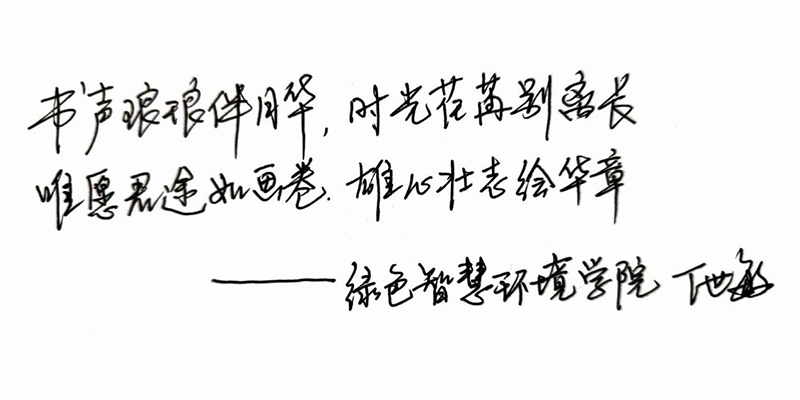 书声琅琅伴月华,时光荏苒别离长
唯愿君途如画卷.雄心壮志绘华章
——绿色智慧环境学院 丁世敏